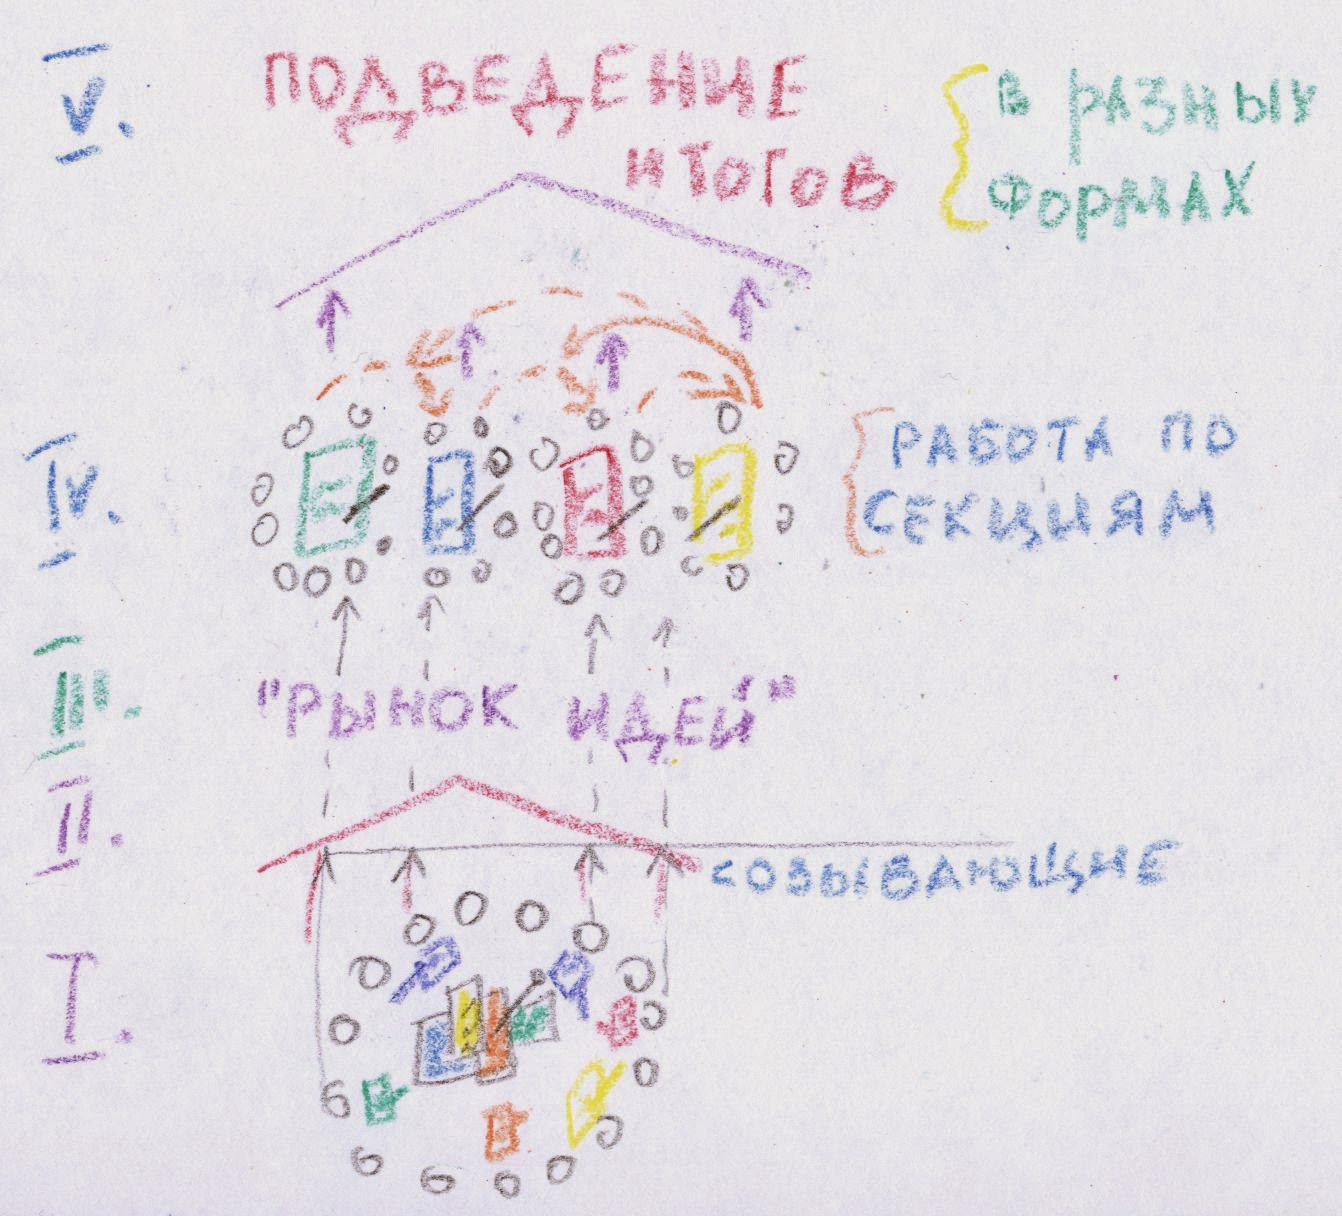 V.
ПОДВЕДЕНИЕ
ИТОГОВ
В РАЗНЫХ
ФОРМАХ
IV.
РАБОТА ПО
СЕКЦИЯМ
III.
"РЫНОК ИДЕЙ"
II.
СОЗЫВАЮЩИЕ
I.